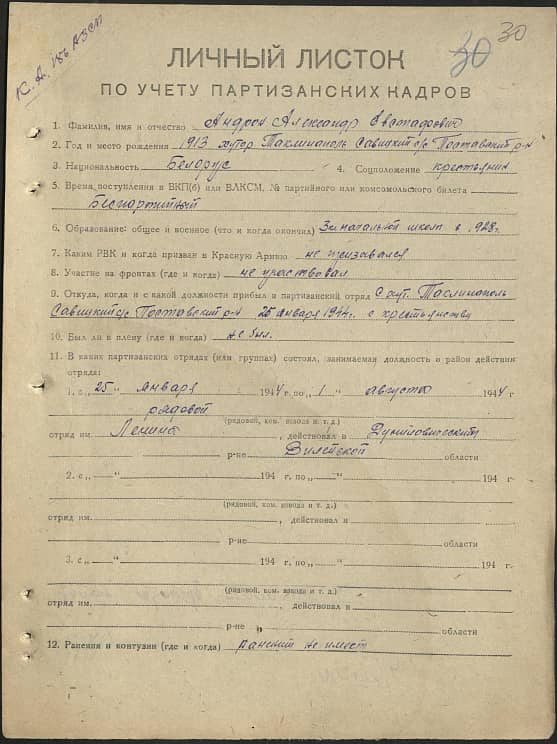 30 30
ЛИЧНЫЙ ЛИСТОК
ПО УЧЕТУ ПАРТИЗАНСКИХ КАДРОВ
1. Фамилия, имя и отчество Андрон Александр
2. Год и место рождения 1913 хутор Савицкий с/с Поставский р-н
3. Национальность Белорус 4. Соцположение крестьянин
5. Время поступления в ВКП(б) или ВЛКСМ, № партийного или комсомольского билета
Беспартийный
6. Образование: общее и военное (что и когда окончил) 3 начальной школы в 1928г.
7. Каким РВК и когда призван в Красную Армию не призывался
8. Участие на фронтах (где и когда) не участвовал
9. Откуда, когда и с какой должности прибыл в партизанский отряд С хут.
Савицкий с/с Поставский р-н 25 января 1944г. с крестьянства
10. Был ли в плену (где и когда) не был.
11. В каких партизанских отрядах (или группах) состоял, занимаемая должность и район действия
отряда:
1. с „25„ января 1944 г. по „1" августа 1944 г
рядовой
(рядовой, ком. взвода и т. д.)
отряд им. Ленина, действовал в Дуниловичский
р-не Вилейской области
2. с „ " 194 г. по „ " 194 г.
(рядовой, ком. взвода и т. д.)
отряд им. , действовал в
р-не области
3. с „ " 194 г. по „ " 194 г.
(рядовой, ком. взвода и т. д.)
отряд им. , действовал в
р-не области
12. Ранения и контузии (где и когда) ранений не имеет